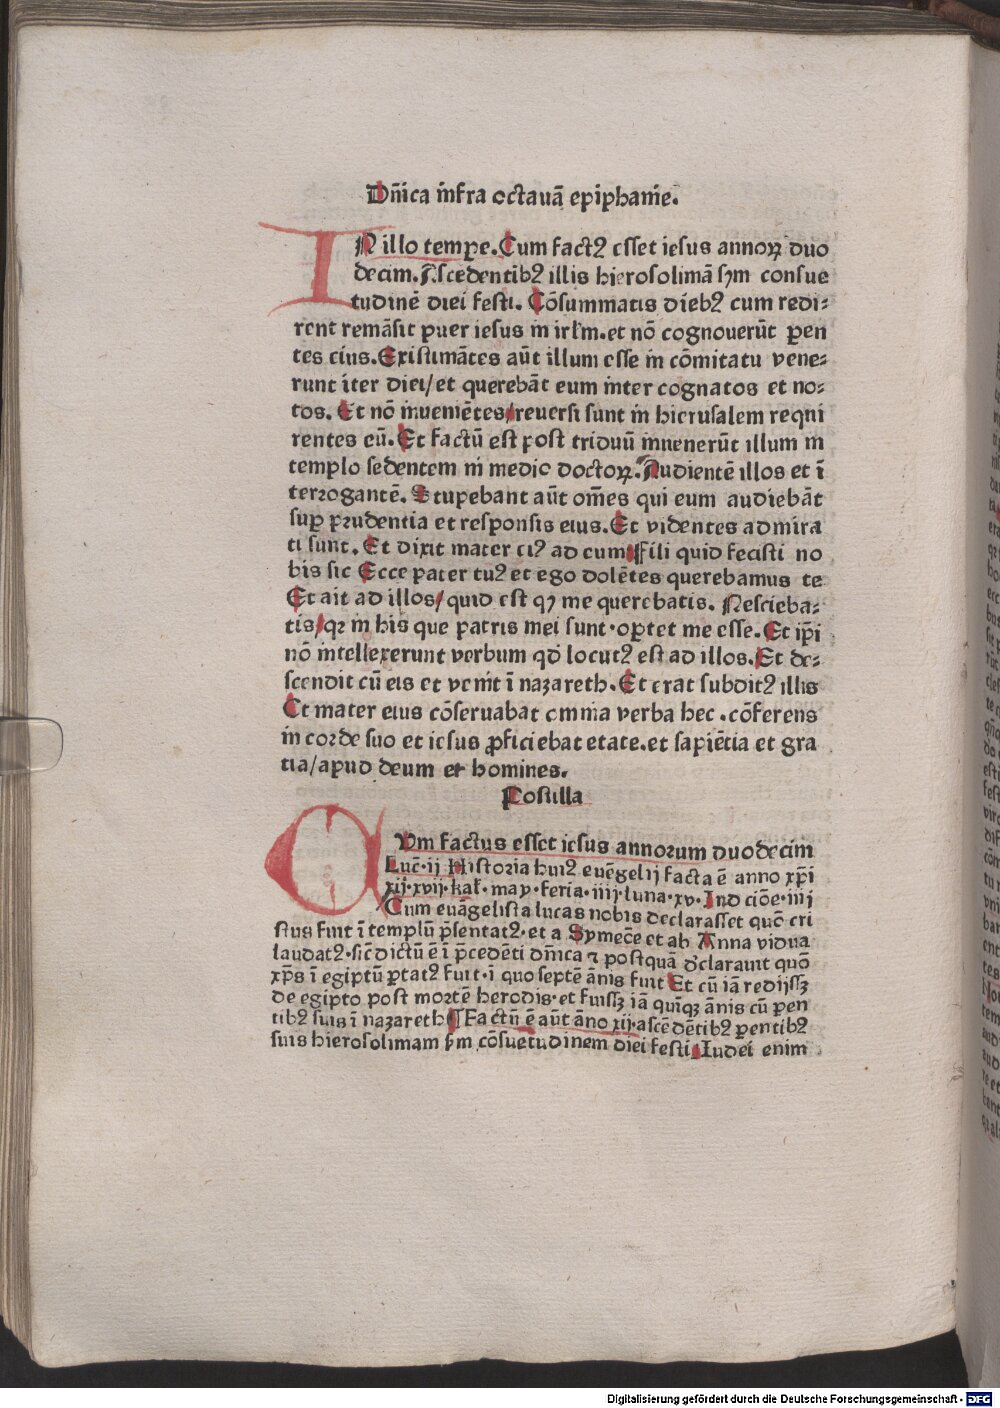 Dñica infra octauã epiphanie.
IN illo tempe. Cum factꝰ esset iesus annoꝝ duo
decim. Ascedentibꝰ illis hierosolimã sꝫm consue
tudinē diei festi. Cõsummatis diebꝰ cum redi⸗
rent remãsit puer iesus in irl'm. et nõ cognouerūt ꝑen
tes eius. Existimãtes aūt illum esse in cõmitatu vene⸗
runt iter diei/ et querebãt eum inter cognatos et no⸗
tos. Et nõ inueniētes/ reuersi sunt in hierusalem requi
rentes eū. Et factū est post triduū inuenerūt illum in
templo sedentem in medio doctoꝝ. Audientē illos et ī
terrogantē. Stupebant aūt om̄es qui eum audiebãt
suꝑ prudentia et responsis eius. Et videntes admira
ti sunt. Et dixit mater eiꝰ ad eum Fili quid fecisti no
bis sic Ecce pater tuꝰ et ego dolētes querebamus te
Et ait ad illos/ quid est qꝫ me querebatis. Nescieba⸗
tis/ qꝛ in his que patris mei sunt· oꝑtet me esse. Et ip̄i
nõ intellexerunt verbum qd̄ locutꝰ est ad illos. Et de⸗
scendit cū eis et venit ī nazareth. Et erat subditꝰ illis
Et mater eius cõseruabat omnia verba hec . cõferens
in corde suo et iesus ꝓficiebat etate. et sapiētia et gra
tia/ apud deum et homines.
Postilla
CVm factus esset iesus annorum duodecim
Luc̄· ij Historia huiꝰ euēgelij facta ē anno xp̄i
xij· xvij· kal'· may· feria· iiij· luna· xv· Ind ciõe· iiij
Cum euãgelista lucas nobis declarasset quõ cri
stus fuit ī templū p̄sentatꝰ· et a Symeõe et ab Anna vidua
laudatꝰ· sic̄ dictū ē ī p̄cedēti dñica ⁊ postquã d'clarauit quõ
xp̄s ī egiptū ꝑtatꝰ fuit· ī quo septē ãnis fuit Et cū iã redijssꝫ
de egipto post mortē herodis· et fuissꝫ iã quīqꝫ ãnis cū ꝑen
tibꝰ suis ī nazareth ¶ Factū ē aūt ãno xij· ascēdētibꝰ ꝑentibꝰ
suis hierosolimam sꝫm cõsuetudinem diei festi Iudei enim
Digitalisierung gefördert durch die Deutsche Forschungsgemeinschaft - DFG